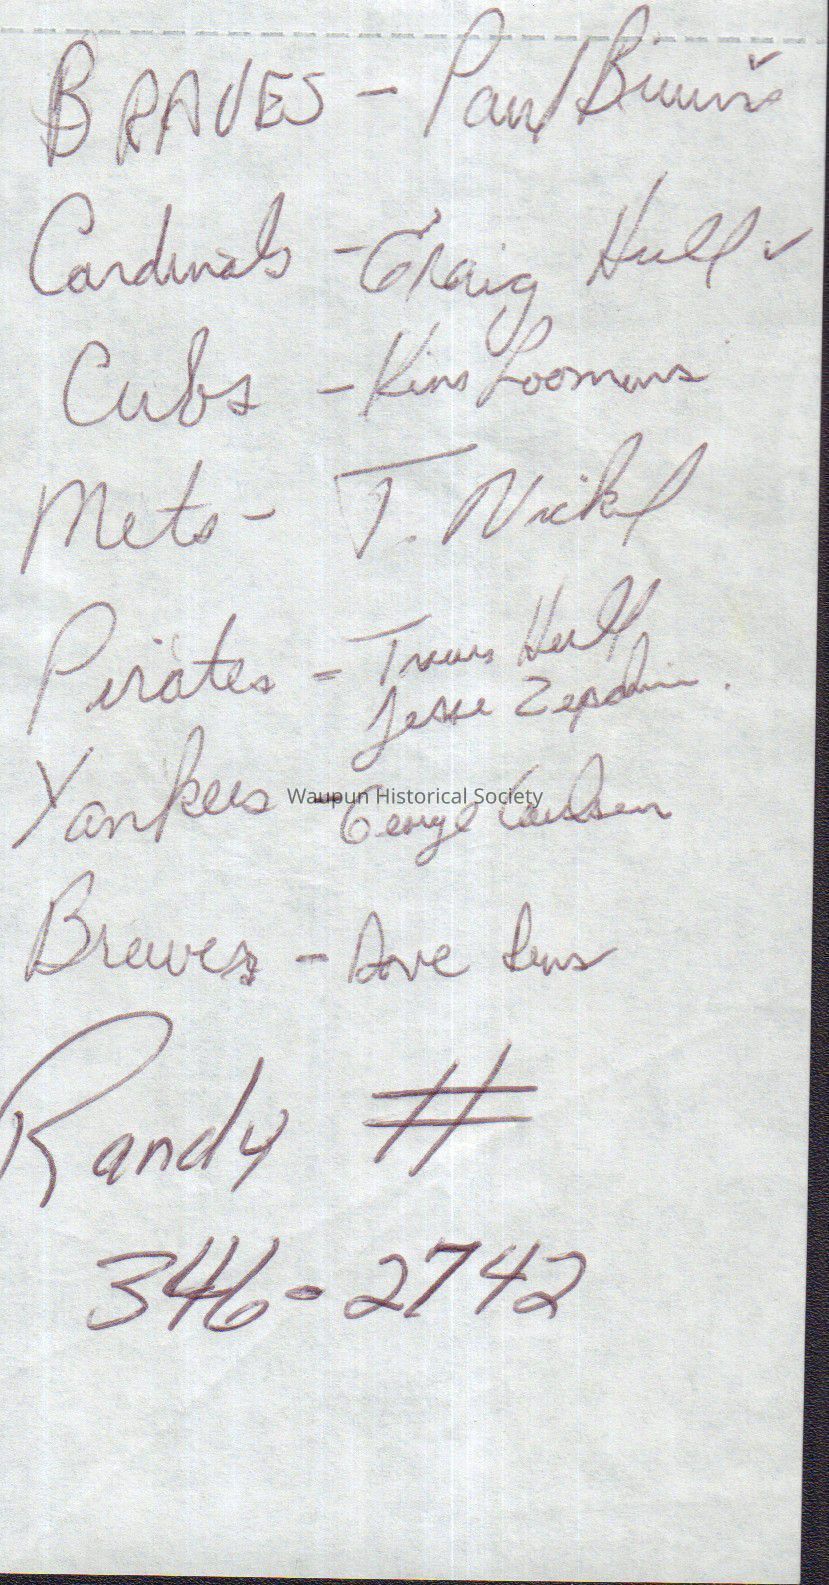 BRAVES - Paul
Cardinals - Craig Hull ✓
Cubs - Kim Loomans
Mets - T. Nickel
Pirates - Travis Hull
Jesse
Yankees - George
Waupun Historical Society
Brewers - Dave
Randy #
346-2742